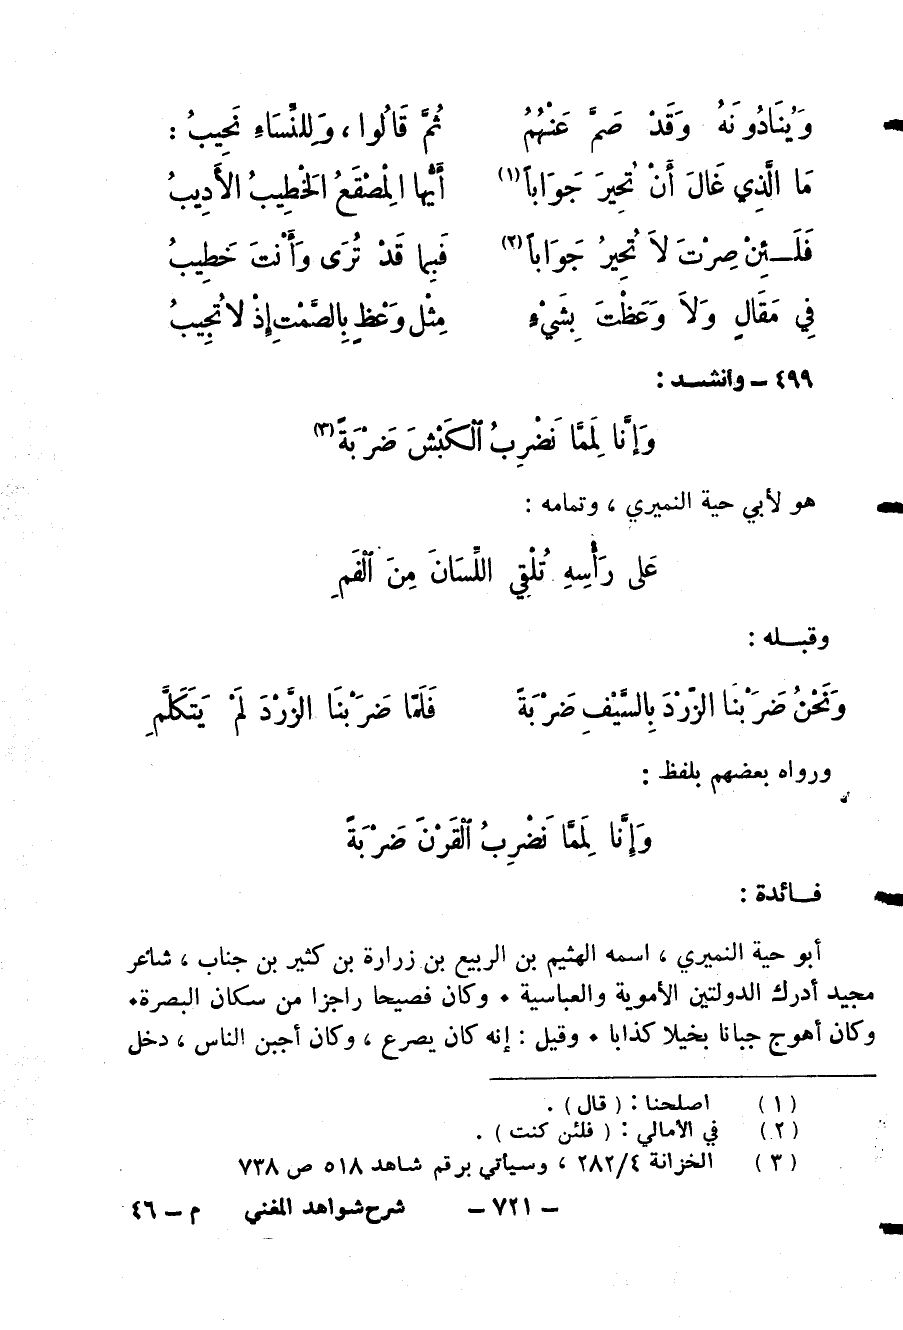 وَيُنَادُونَهُ وَقَدْ صَمَّ عَنْهُمُ ثُمَّ قَالُوا ، وَلِلنِّسَاءِ نَحِيبُ :
مَا الَّذِي غَالَ أَنْ تُحِيرَ جَوَاباً (١) أَيُّهَا الْمِصْقَعُ الْخَطِيبُ الأَدِيبُ
فَلَـئِنْ صِرْتَ لاَ تُحِيرُ جَوَاباً (٢) فَبِما قَدْ تُرَى وَأَنْتَ خَطِيبُ
فِي مَقَالٍ وَلاَ وَعَظْتَ بِشَيْءٍ مِثْل وَعْظٍ بِالصَّمْتِ إِذْ لاَ تُجِيبُ
٤٩٩ ـ وأنشـد :
وَإِنَّا لَمِمَّا نَضْرِبُ ٱلْكَبْشَ ضَرْبَةً (٣)
هو لأبي حية النميري ، وتمامه :
عَلى رَأْسِهِ تُلْقِي اللِّسَانَ مِنَ ٱلْفَمِ
وقبـله :
وَنَحْنُ ضَرَبْنَا الزَّرْدَ بِالسَّيْفِ ضَرْبَةً فَلَمّا ضَرَبْنَا الزَّرْدَ لَمْ يَتَكَلَّمِ
ورواه بعضهم بلفظ :
وَإِنَّا لَمِمَّا نَضْرِبُ ٱلْقَرْنَ ضَرْبَةً
فـائدة :
أبو حية النميري ، اسمه الهثيم بن الربيع بن زرارة بن كثير بن جناب ، شاعر
مجيد أدرك الدولتين الأموية والعباسية • وكان فصيحا راجزا من سكان البصرة•
وكان أهوج جبانا بخيلا كذابا • وقيل : إنه كان يصرع ، وكان أجبن الناس ، دخل
(١) اصلحنا : ( قال ) .
(٢) في الأمالي : ( فلئن كنت ) .
(٣) الخزانة ٢٨٢/٤ ، وسيأتي برقم شاهد ٥١٨ ص ٧٣٨
ـ ٧٢١ ـ شرح شواهد المغني م ـ ٤٦